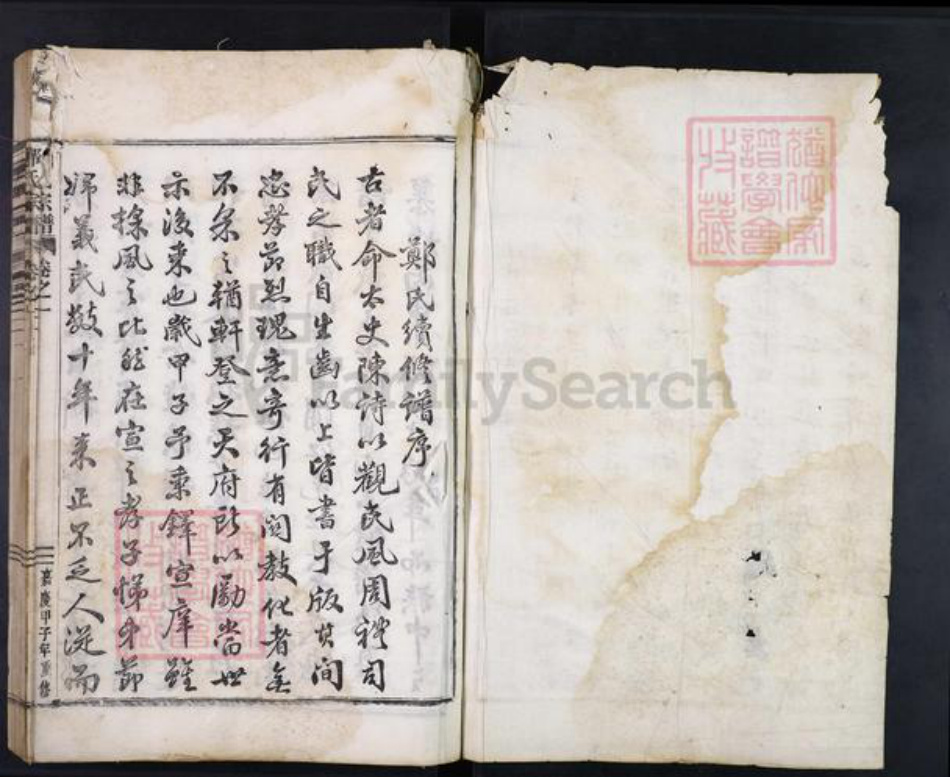 鄭氏續修譜序
古者命太史陳詩以觀民風周禮司
民之職自生齒以上皆書于版其間
忠孝節烈瑰意奇行有関教化者無
不采之輶軒登之天府所以勵當世
示後來也歲甲子予秉鐸宣庠雖
非採風之比然在宣之孝子悌弟節
婦義民數十年来正不乏人從而
宗譜
卷之一
嘉慶甲子年重修
譜學會
收藏
FamilySearch